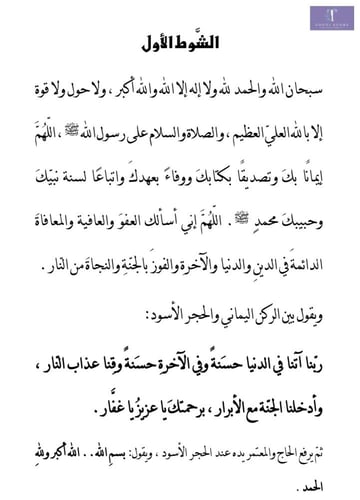 الشَّوط الأول
سبحان الله والحمد لله ولا إله إلا الله والله أكبر ، ولا حول ولا قوة
إلا بالله العليّ العظيم ، والصلاة والسلام على رسول الله ﷺ ، اللّهُمَّ
إيمانًا بكَ وتصديقًا بكتابكَ ووفاءً بعهدكَ واتباعًا لسنة نبيّكَ
وحبيبكَ محمدٍ ﷺ . اللّهُمَّ إني أسألك العفوَ والعافية والمعافاةَ
الدائمةَ في الدينِ والدنيا والآخرة والفوزَ بالجنّةِ والنجاةَ من النار .
ويقول بين الركن اليماني والحجر الأسود:
ربّنا آتنا في الدنيا حسَنةً وفي الآخرةِ حسنةً وقنا عذاب النار ،
وأدخلنا الجنّة مع الأبرار ، برحمتكَ يا عزيزُ يا غفَّار .
ثمّ يرفع الحاج والمعتمر يده عند الحجر الأسود ، ويقول: بسمِ الله . . الله أكبر ولله
الحمد .